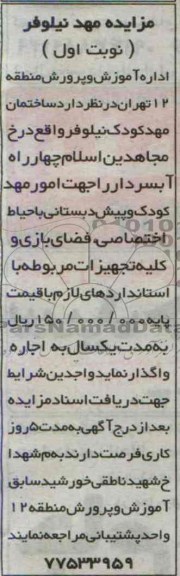 مزایده مهد نیلوفر
( نوبت اول )
اداره آموزش وپرورش منطقه
۱۲ تهران در نظر دارد ساختمان
مهدکودک نیلوفر واقع درخ
مجاهدین اسلام چهارراه
آبسردار را جهت امور مهد
کودک وپیش دبستانی باحیاط
اختصاصی فضای بازی و
کلیه تجهیزات مربوطه با
استانداردهای لازم باقیمت
پایه ۱۵۰/۰۰۰/۰۰۰ ریال
به مدت یکسال به اجاره
واگذار نماید واجدین شرایط
جهت دریافت اسناد مزایده
بعداز درج آگهی به مدت ۵ روز
کاری فرصت دارند به م شهدا
خ شهید ناطقی خورشید سابق
آموزش وپرورش منطقه ۱۲
واحد پشتیبانی مراجعه نمایند
۷۷۵۳۳۹۵۹